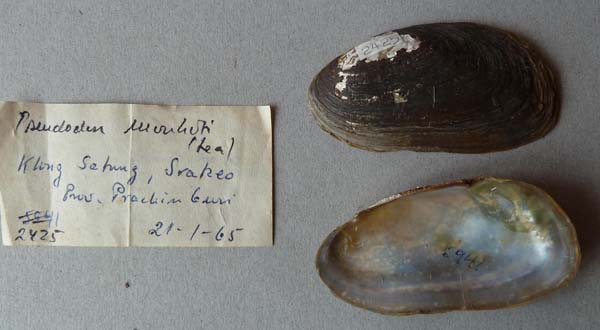 Pseudodon mouhoti
(Lea)
Klong Satung, Srakeo
Prov. Prachin buri
5941
2425 21-1-65
2425
5941